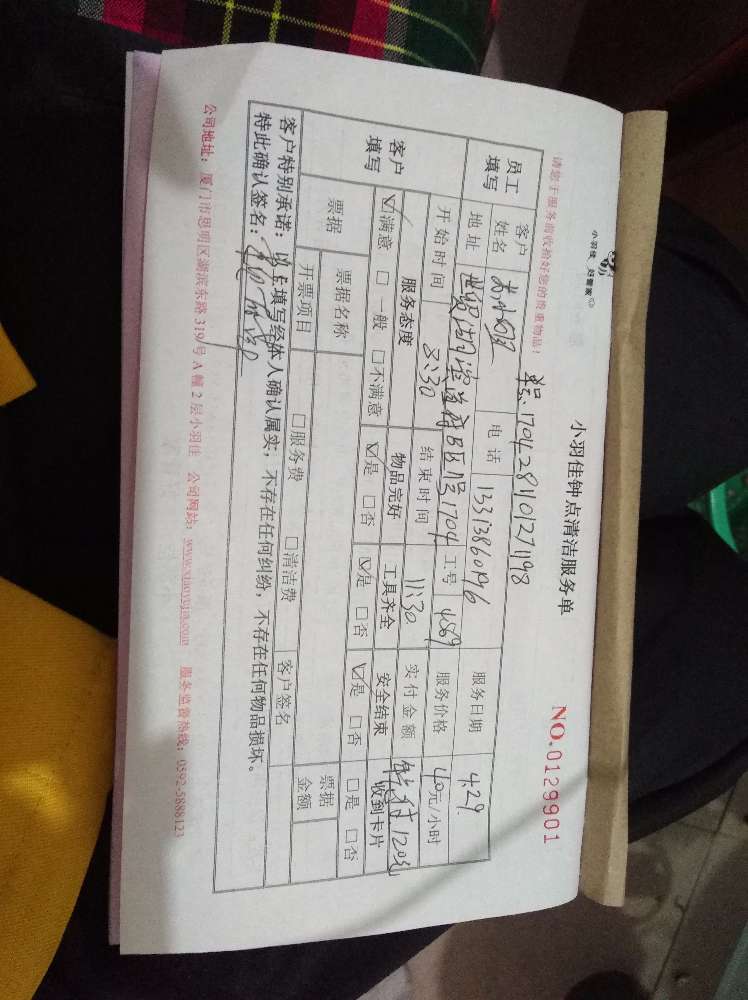 小羽佳 好管家
小羽佳钟点清洁服务单
NO.0129901
请您于服务前收拾好您的贵重物品!
单号:170428110127198
员工填写
客户姓名 电话 13313860196 服务日期 4.29
地址 B区 1704 工号 4569 服务价格 40元/小时
开始时间 8:30 结束时间 11:30 实付金额 120元
客户填写
服务态度 物品完好 工具齐全 安全结束 收到卡片
☑满意 □一般 □不满意 ☑是 □否 ☑是 □否 ☑是 □否 □是 □否
票据 票据名称 票据金额
开票项目 □服务费 □清洁费 客户签名
客户特别承诺:以上填写经本人确认属实,不存在任何纠纷,不存在任何物品损坏。
特此确认签名:
公司地址:厦门市思明区湖滨东路319号A幢2层小羽佳 公司网站:www.xiaoyujia.com 服务监督热线:0592-5888123